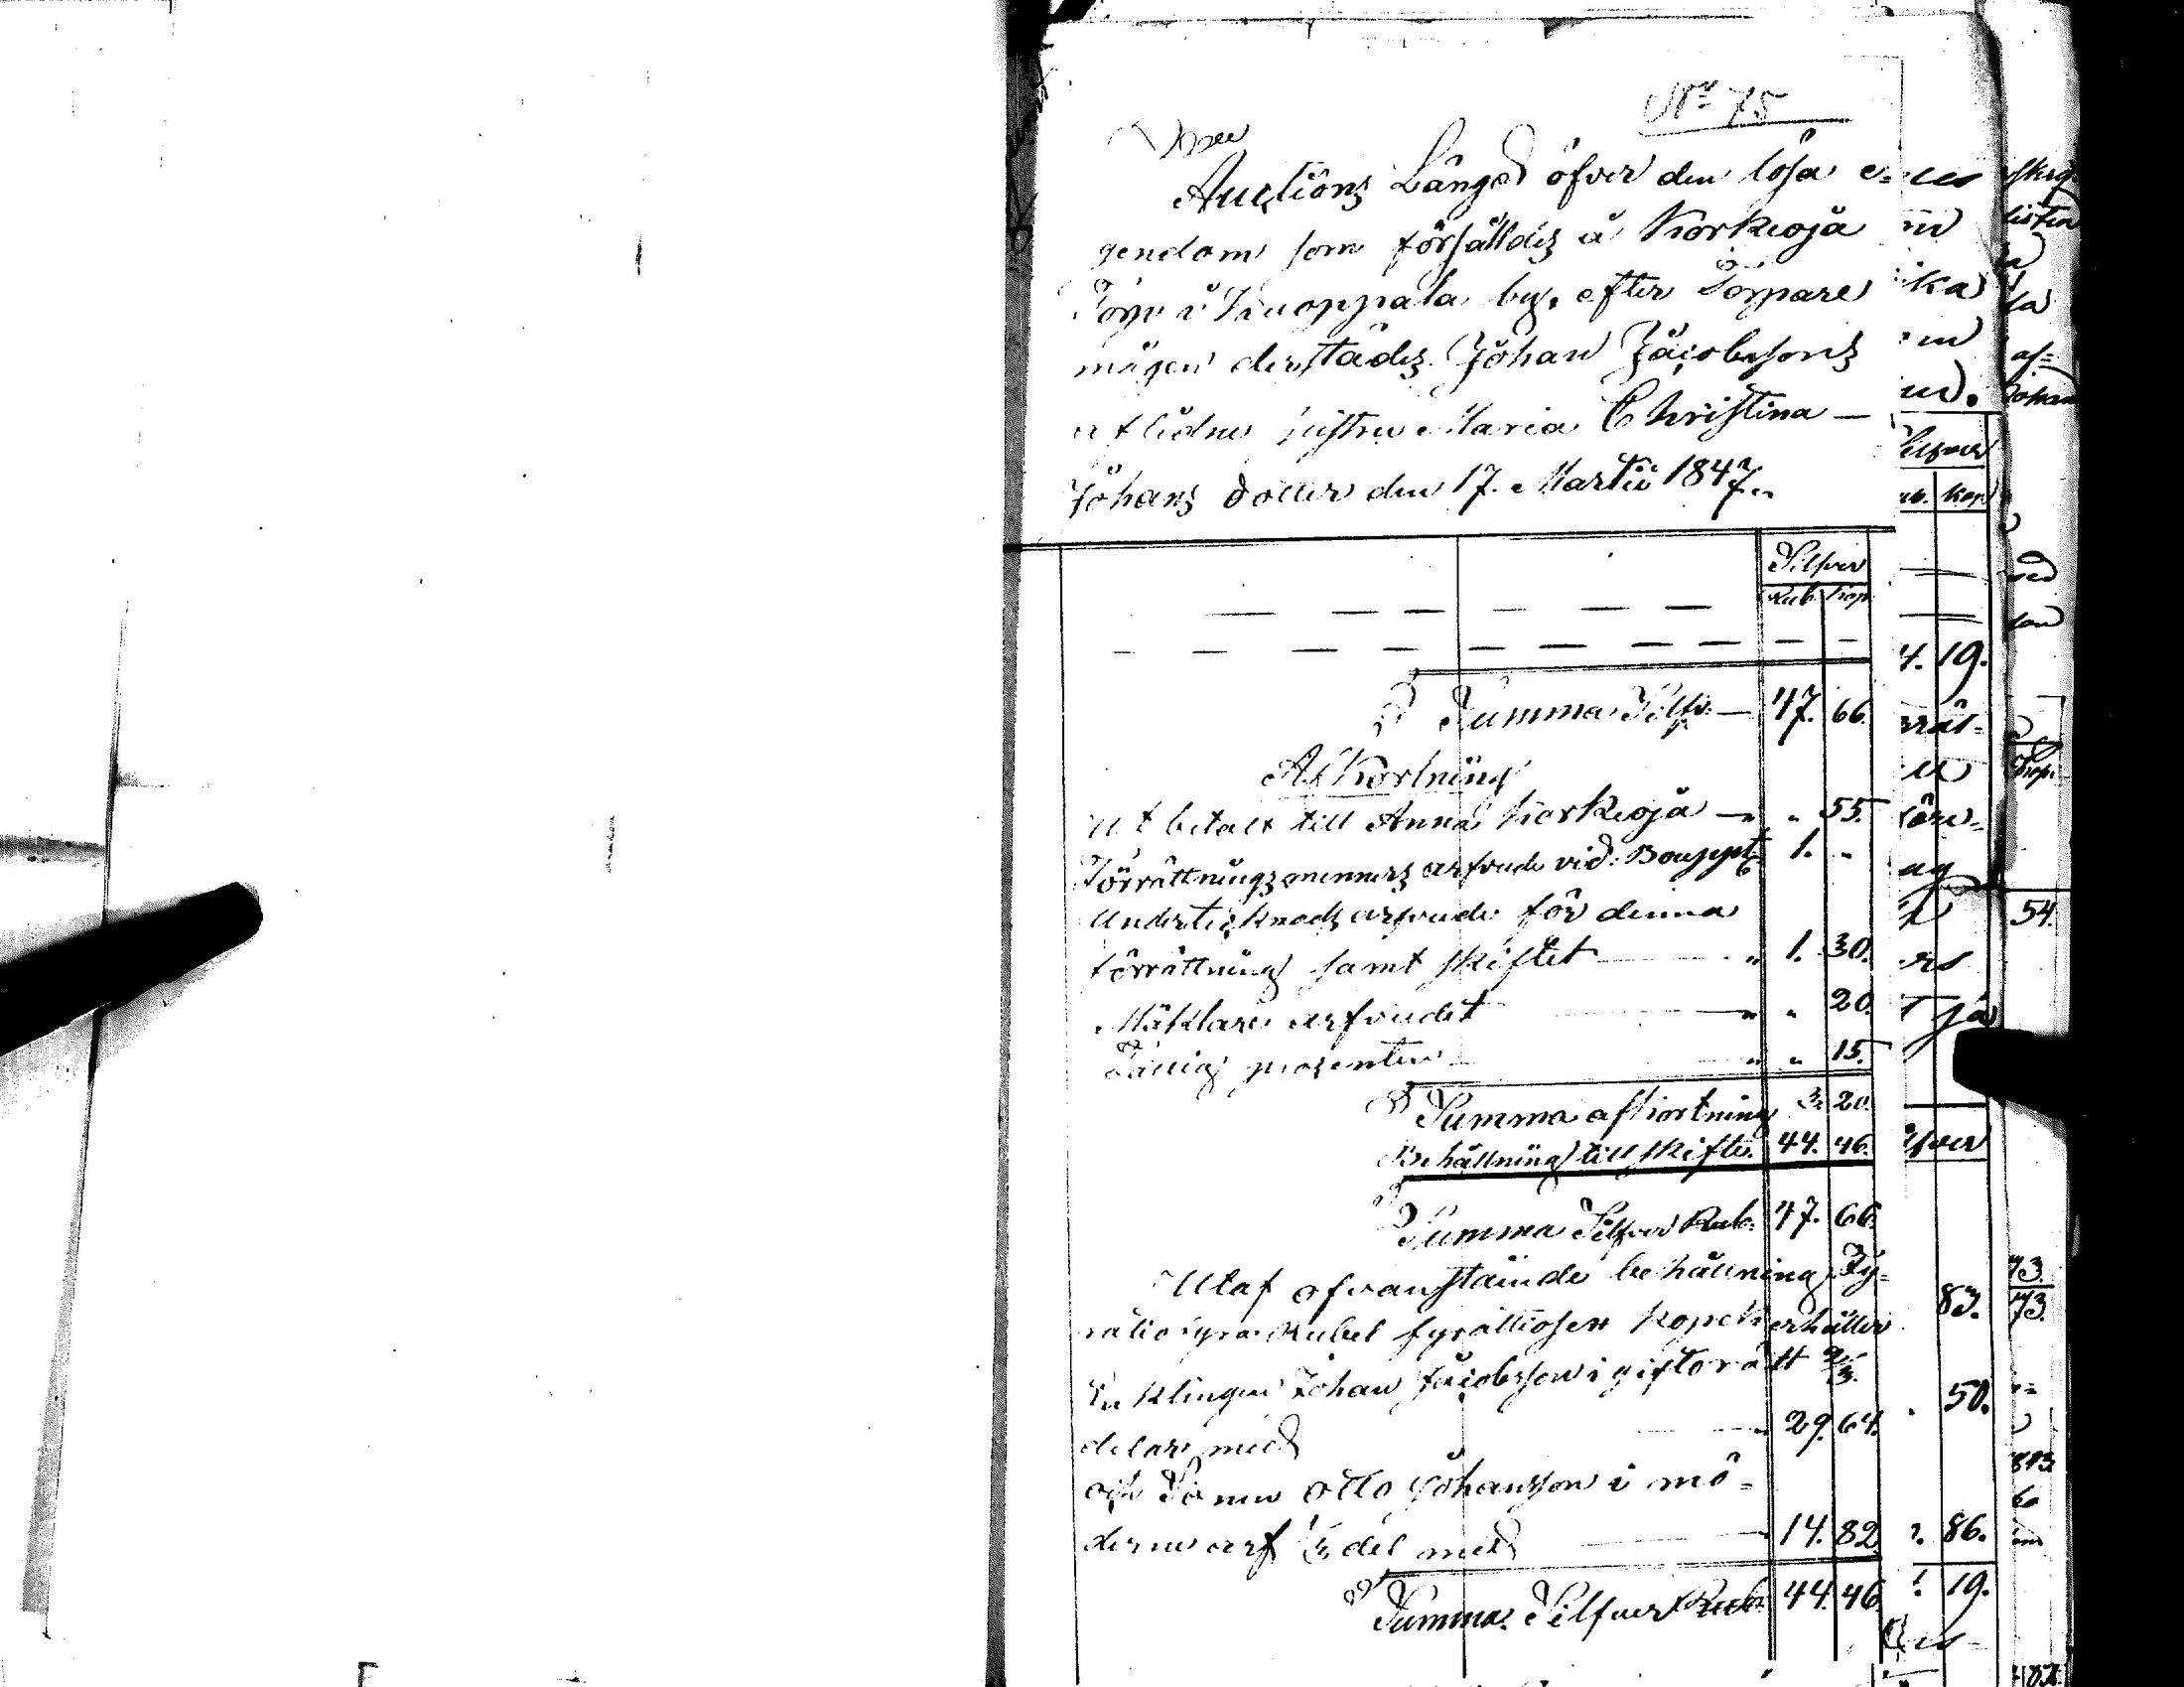 No 75
Auctions Längd öfver den lösa e=
gendom som försåldes å Korkioja
Torp i Knuoppala by, efter Torpare
mågen derstädes Johan Jacobssons
aflidne hustru Maria Christina —
Johans dotter den 17. Martii 1847.
Silfver
Rub. Kop.
Summa Silfv. — 47. 66.
Afkortning
Utbetalt till Anna Korkioja — " " 55.
Förrättningsmänners arfvode vid Bouppt. 1. "
Undertecknads arfvode för denna
förrättning samt skiftet — " 1. 30.
Mäklare arfvodet — " " 20.
Fattig procenten — " " 15.
Summa afkortning 3. 20.
Behållning till skifte. 44. 46.
Summa Silfver Rub. 47. 66.
Utaf ofvanstående behållning Fy=
ratiofyra Rubel fyratiosex kopek erhåller
Enklingen Johan Jacobsson i giftorätt 2/3
delar med — 29. 64.
och Sonen Otto Johansson i mö=
derne arf 1/3 del med — 14. 82
Summa Silfver Rub. 44. 46.